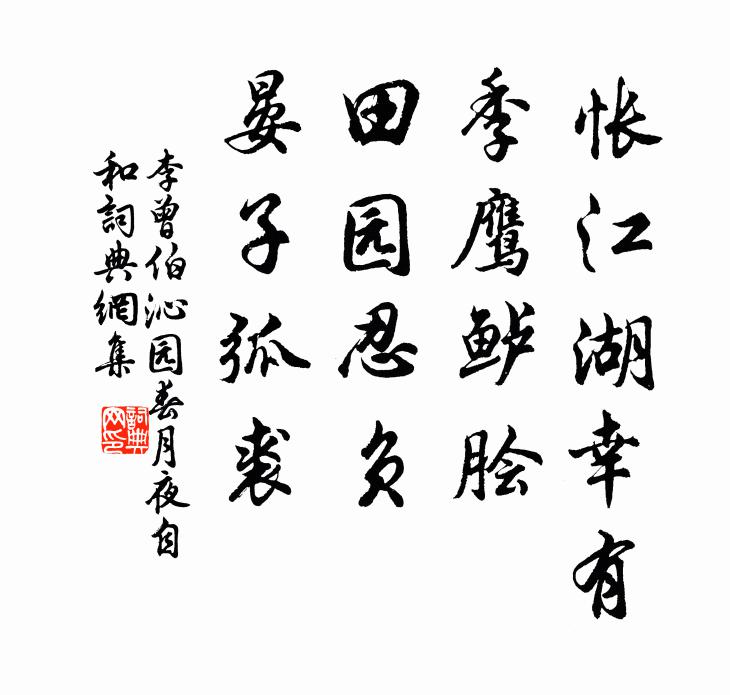 怅江湖幸有
季鹰鲈脍
田园忍负
晏子狐裘
李曾伯沁园春月夜自
和詞典網集
詞典
网印